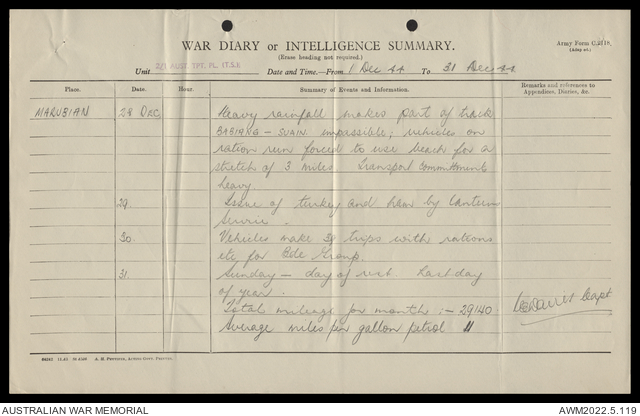 WAR DIARY or INTELLIGENCE SUMMARY.
(Erase heading not required.)
Army Form C.2118.
(Adapted.)
Unit 2/1 AUST TPT. PL. (T.S.) Date and Time.—From 1 Dec 44 To 31 Dec 44
Place. Date. Hour. Summary of Events and Information. Remarks and references to Appendices, Diaries, &c.
MARUBIAN 28 DEC Heavy rainfall makes part of track
BABIANG - SUAIN impassible; vehicles on
ration run forced to use beach for a
stretch of 3 miles Transport committments
heavy.
29. Issue of turkey and ham by Canteens
Service -
30. Vehicles make 38 trips with rations
etc for Bde Group.
31. Sunday - day of rest. Last day
of year.
Total mileage for month :- 29140
Average miles per gallon petrol 11
Capt
A. H. PETTIFER, ACTING GOVT. PRINTER.
AUSTRALIAN WAR MEMORIAL
AWM2022.5.119